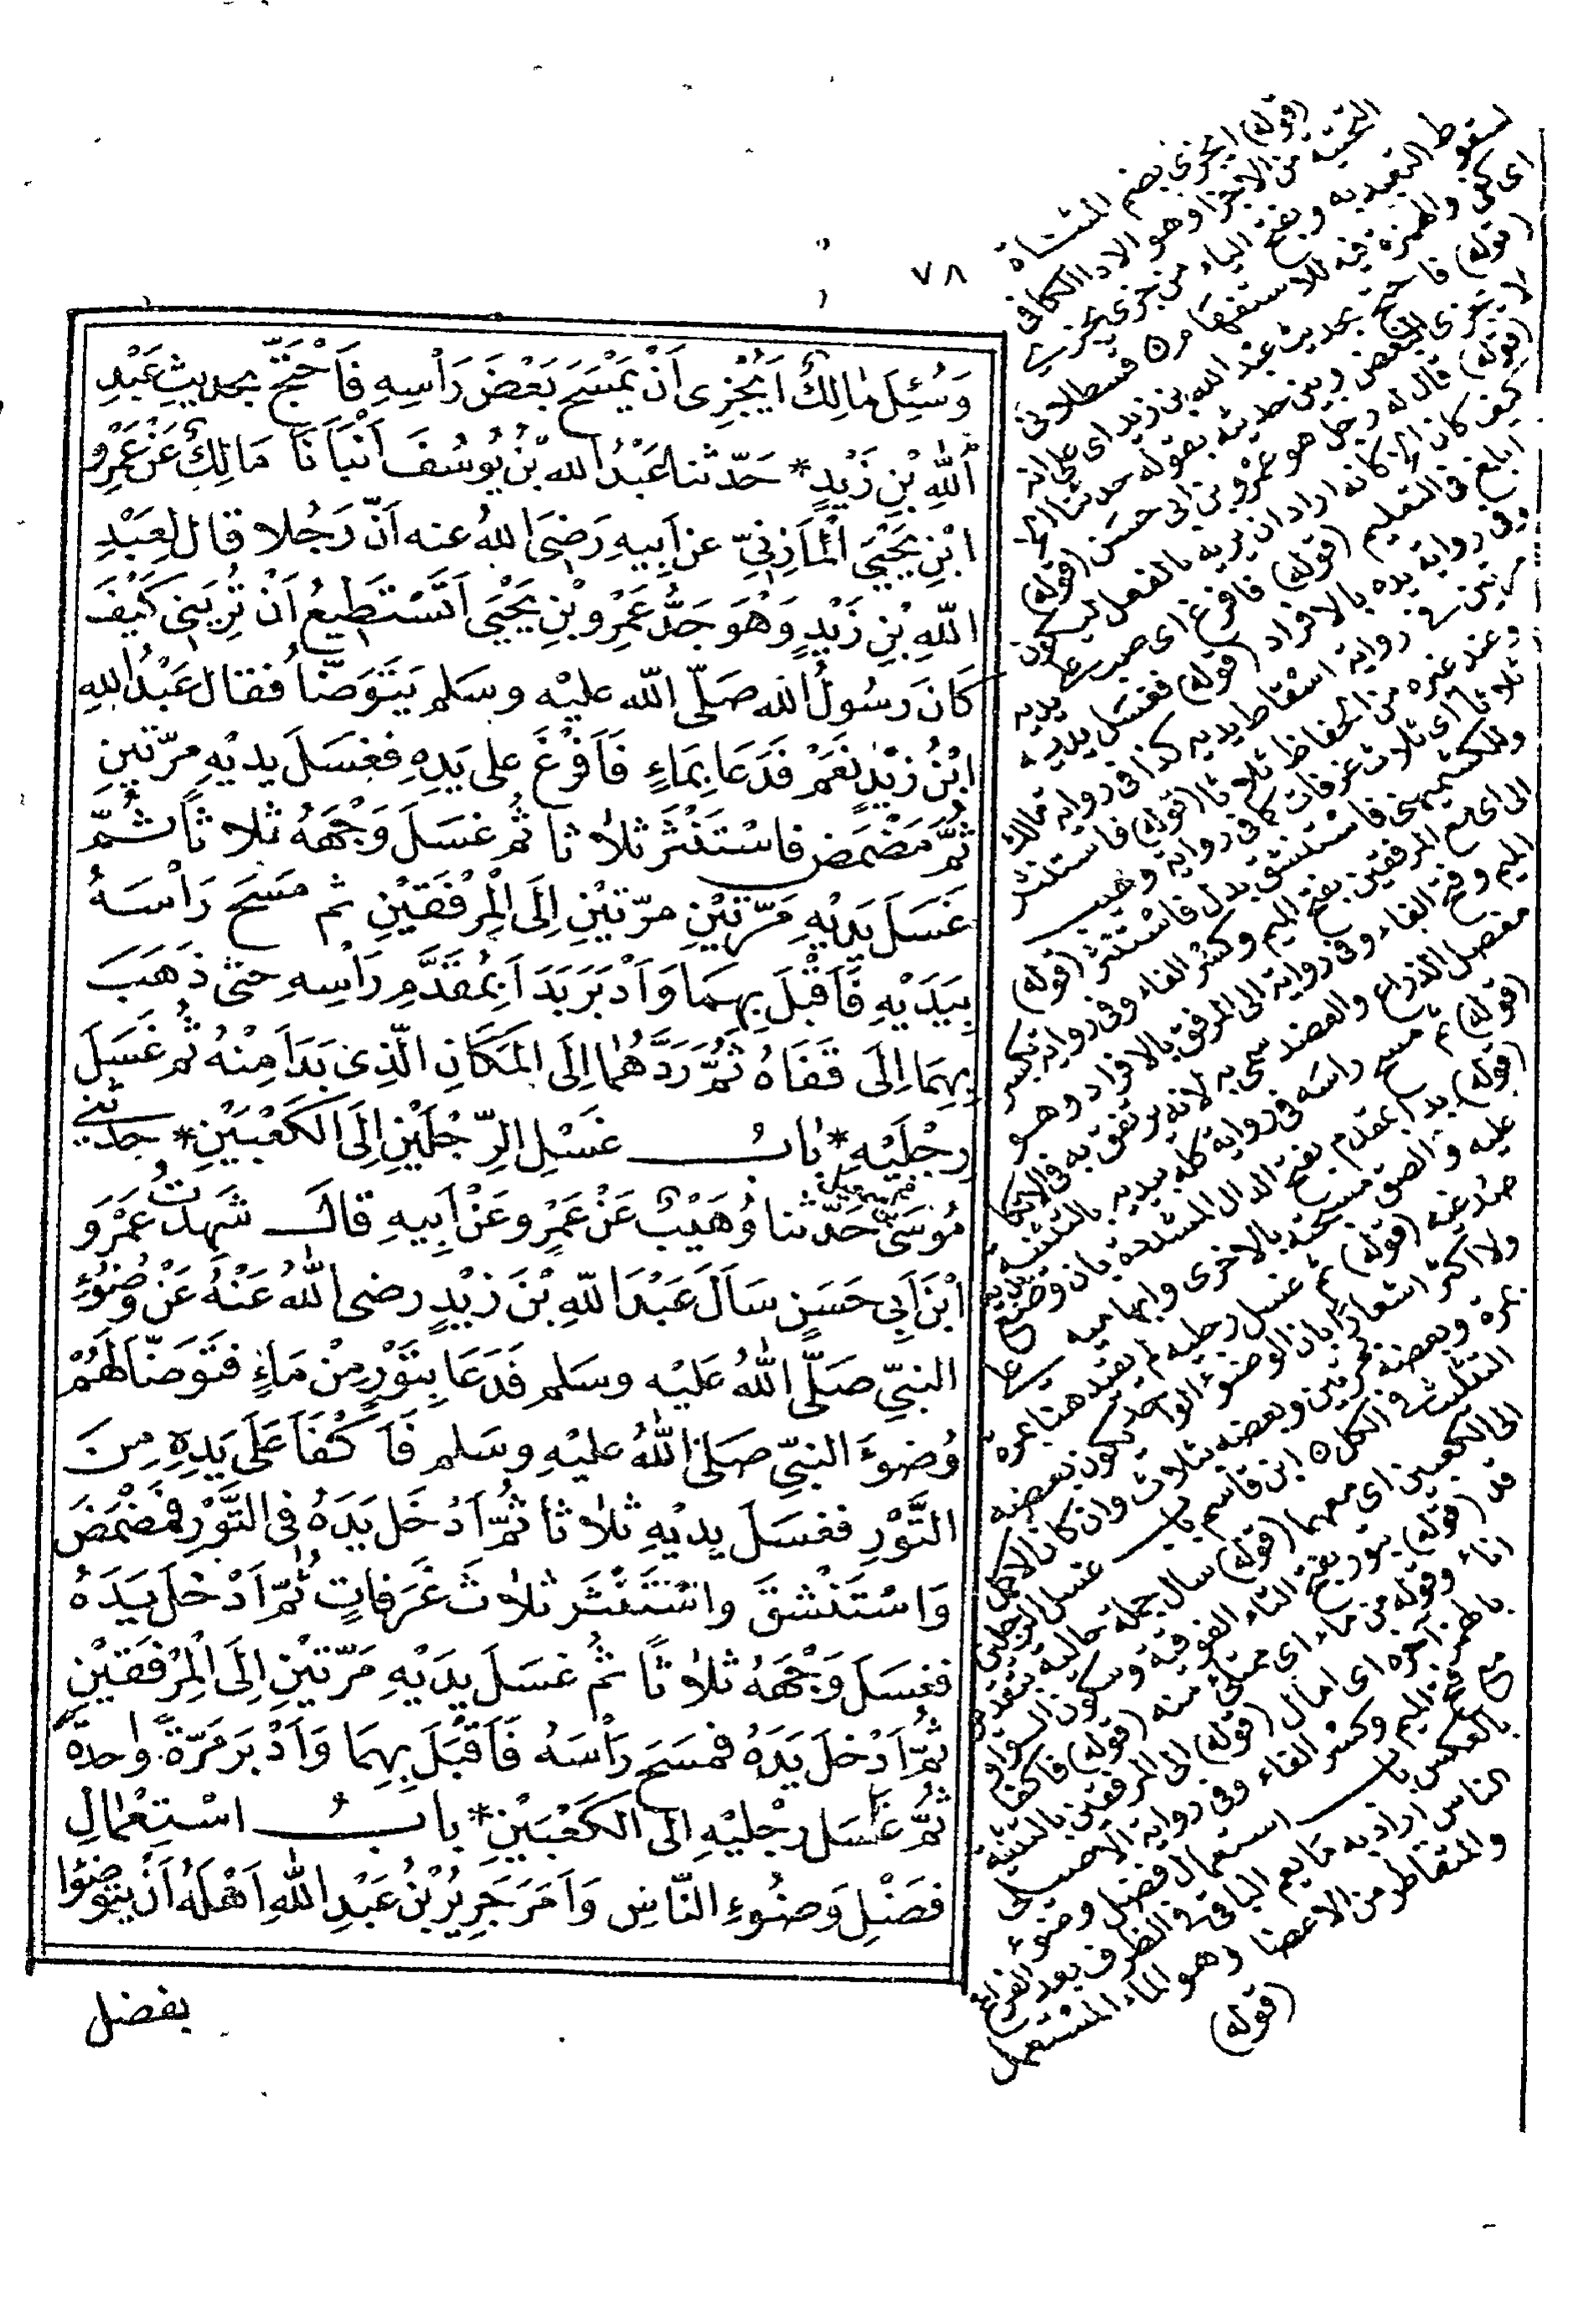 ٧٨
وَسُئِلَ مَالِكٌ اَيُجْزِى اَنْ يَمْسَحَ بَعْضَ رَاْسِهِ فَاحْتَجَّ بحديثِ عَبْدِ
اللّٰهِ بْنِ زَيْدٍ * حَدّثنا عَبْدُ الله بْنُ يُوسُفَ اَنْبَاَنَا مَالِكٌ عَنْ عَمْرِو
ابْنِ يَحْيَى الْمَازِنِيّ عن اَبِيهِ رَضِىَ اللهُ عنه اَنّ رَجُلا قال لِعَبْدِ
اللّهِ بْنِ زَيْدٍ وَهُوَ جَدُّ عَمْرِو بْنِ يَحْيَى اَتَسْتَطِيعُ اَنْ تُرِيَنِى كَيْفَ
كَانَ رَسُولُ الله صَلّى الله عليْه وسَلم يَتَوَضّأُ فقال عَبْدُ اللهِ
ابْنُ زَيْدٍ نَعَمْ فَدَعَا بِمَاءٍ فَاَفْرَغَ على يَدِهِ فغسَلَ يديْهِ مرّتينِ
ثُمَّ مَضْمَضَ فاسْتَنْثَرَ ثلاثا ثُم غسَلَ وَجْهَهُ ثلاثاً ثُمّ
غَسَلَ يَدَيْهِ مَرَّتَيْنِ مرّتيْنِ اِلَى الْمِرْفَقَيْنِ ثم مسَحَ رَاْسَهُ
بِيَدَيْهِ فَاَقْبَلَ بِهِمَا وَاَدْبَرَ بَدَاَ بِمُقَدَّمِ رَاْسِهِ حتّى ذَهَبَ
بِهِمَا اِلَى قَفَاهُ ثُمَّ رَدَّهُمَا اِلَى الْمَكَانِ الّذِى بَدَاَ مِنْهُ ثُم غَسَلَ
رِجْلَيْهِ * بَابُ غَسْلِ الرِّجْلَيْنِ اِلَى الكَعْبَيْنِ * حدّثنى
مُوسَى حَدّثنا وُهَيْبٌ عَنْ عَمْرٍو عَنْ اَبِيهِ قالَ شَهِدْتُ عَمْرَو
ابْنَ اَبِى حَسَنٍ سَاَلَ عَبْدَ اللّهِ بْنَ زَيْدٍ رضى اللهُ عَنْهُ عَنْ وُضُوءِ
النبيّ صَلَّى اللهُ عَلَيْه وسَلم فَدَعَا بِتَوْرٍ مِنْ مَاءٍ فتَوَضّأ لَهُمْ
وُضوءَ النبيّ صَلىّ اللهُ عليْهِ وسَلم فَاَكْفَاَ عَلَى يَدِهِ مِنَ
التَّوْرِ فغسَلَ يديْهِ ثلاثا ثُمّ اَدْخَلَ يَدَهُ فى التَّوْرِ فَمَضْمَضَ
وَاسْتَنْشَقَ واسْتَنْثَرَ ثلاثَ غَرَفاتٍ ثُمّ اَدْخلَ يَدَهُ
فغسَلَ وَجْهَهُ ثلاثاً ثُم غسَلَ يدَيْهِ مَرّتيْنِ اِلَى الْمِرْفَقَيْنِ
ثُمّ اَدْخلَ يَدَهُ فمسَحَ رَاْسَهُ فَاَقْبَلَ بِهِمَا وَاَدْبَرَ مَرّةً واحدَةً
ثُمَّ غَسَل رِجْليْهِ اِلَى الكَعْبَيْنِ * بابُ اسْتِعْمَالِ
فَضْلِ وَضُوءِ النّاسِ وَاَمَرَ جَرِيرُ بْنُ عَبْدِ اللهِ اَهْلَهُ اَنْ يتوَضّؤُا
بفضل
(قوله) ايجزى بضم المثناة
التحتية من الاجزا وهو الاداء الكافى
لسقوط التعبد به وبفتح الياء من جزى يجزى
اى كفى والهمزة فيه للاستفهام ه قسطلانى
(قوله) فاحتج بحديث عبد الله بن زيد اى على انه
لا يجزى البعض وبين حديثه بقوله حدثنا الخ
(قوله) قال له رجل هو عمرو بن ابى حسن (قوله)
كيف كان الخ كانه اراد ان يريه بالفعل ليكون
ابلغ فى التعليم (قوله) فافرغ اى صب على يديه
وفى رواية يده بالافراد (قوله) فغسل يديه
مرتين فى رواية اسقاط يديه كذا فى رواية مالك
وعند غيره من الحفاظ ثلاثا (قوله) فاستنثر
ثلاثا اى ثلاث غرفات كما فى رواية وهيب
وللكشميهنى فاستنشق بدل فاستنثر (قوله)
الى اى مع المرفقين بفتح الميم وكسر الفاء وفى رواية بكسر
الميم وفتح الفاء وفى رواية الى المرفق بالافراد وهو
مفصل الذراع والعضد سمى به لانه يرتفق به فى الاتكا
(قوله) ثم مسح راسه فى رواية كله بيديه بالتثنية
(قوله) بدا بمقدم بفتح الدال المشددة بان وضع يديه
عليه والصق مسبحته بالاخرى وابهاميه على
صدغيه (قوله) ثم غسل رجليه لم يقيد هنا بمرة
ولا اكثر اشعارا بان الوضوء الواحد يكون بعضه
بمرة وبعضه بمرتين وبعضه بثلاث وان كان الاكمل
التثليث فى الكل ه ابن قاسم باب غسل الرجلين
الى الكعبين اى معهما (قوله) سال جملة حالية بتقدير
قد (قوله) بتور بفتح التاء الفوقية وسكون الواو
اناء وقوله من ماء اى ممتلئ منه (قوله) فاكفا
بالهمز آخره اى امال (قوله) الى المرفقين بالتثنية
مع فتح الميم وكسر الفاء وفى رواية الاصيلى
بالعكس باب استعمال فضل وضوء
الناس اراد به ما يعم الباقى فى الظرف بعد الفراغ
والمتقاطر من الاعضا وهو الماء المستعمل
(قوله)